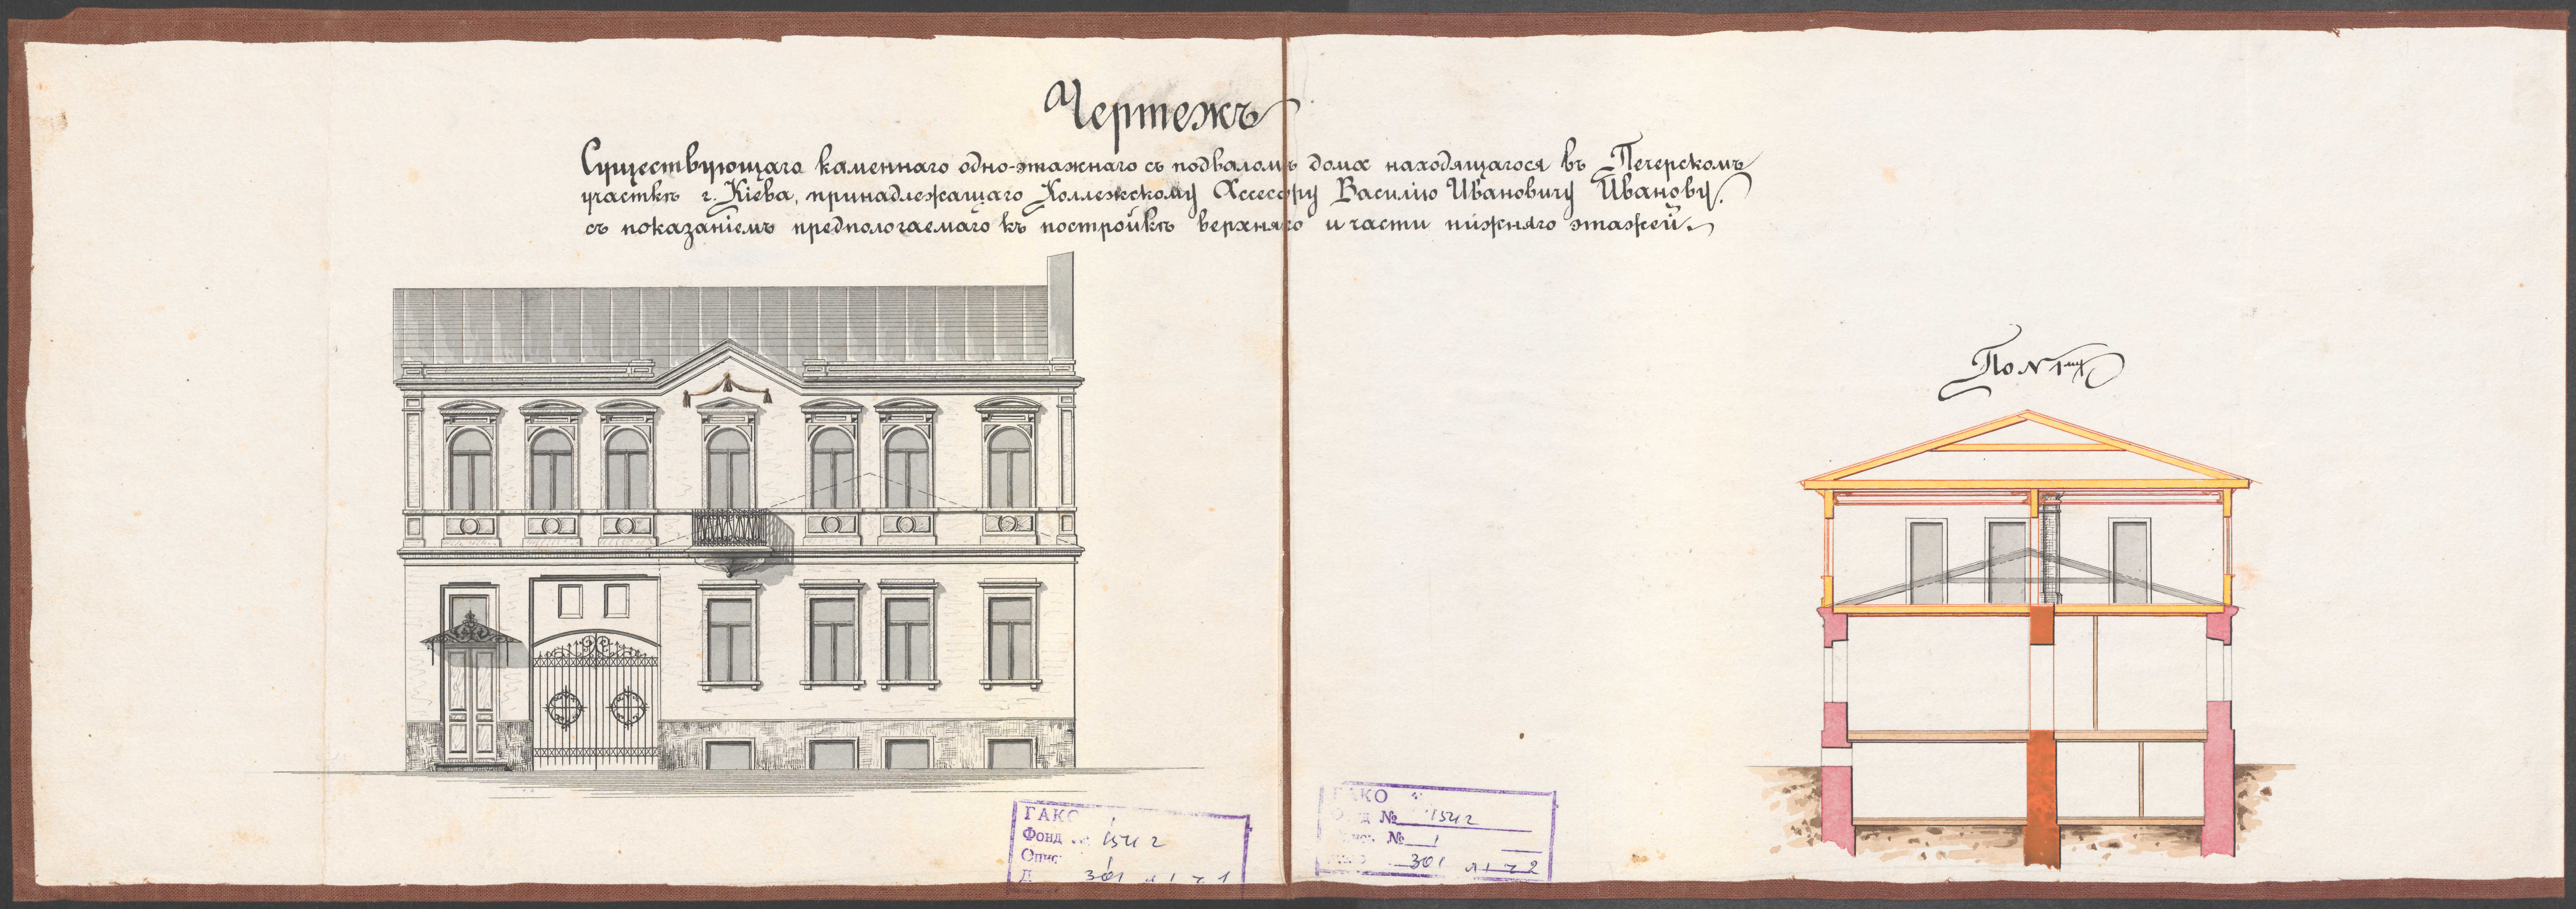 Чертежъ
Существующаго каменнаго одно-этажнаго съ подваломъ дома находящагося въ Печерскомъ
участкѣ г. Кіева, принадлежащаго Коллежскому Ассесору Василію Ивановичу Иванову.
съ показаніемъ предпологаемаго къ постройкѣ верхняго и части нижняго этажей.
По N 1му
ГАКО
Фонд 1542
Опис 1
Д 301 л 1 ч 1
ГАКО
№ 1542
№ 1
301 л 1 ч 2